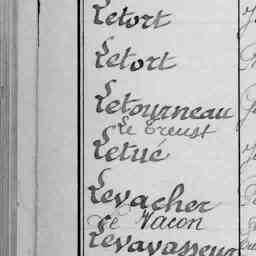 Letort
Letort
Letourneau
Le Creust
Letué
Levacher
Le Vacon
Levavasseur